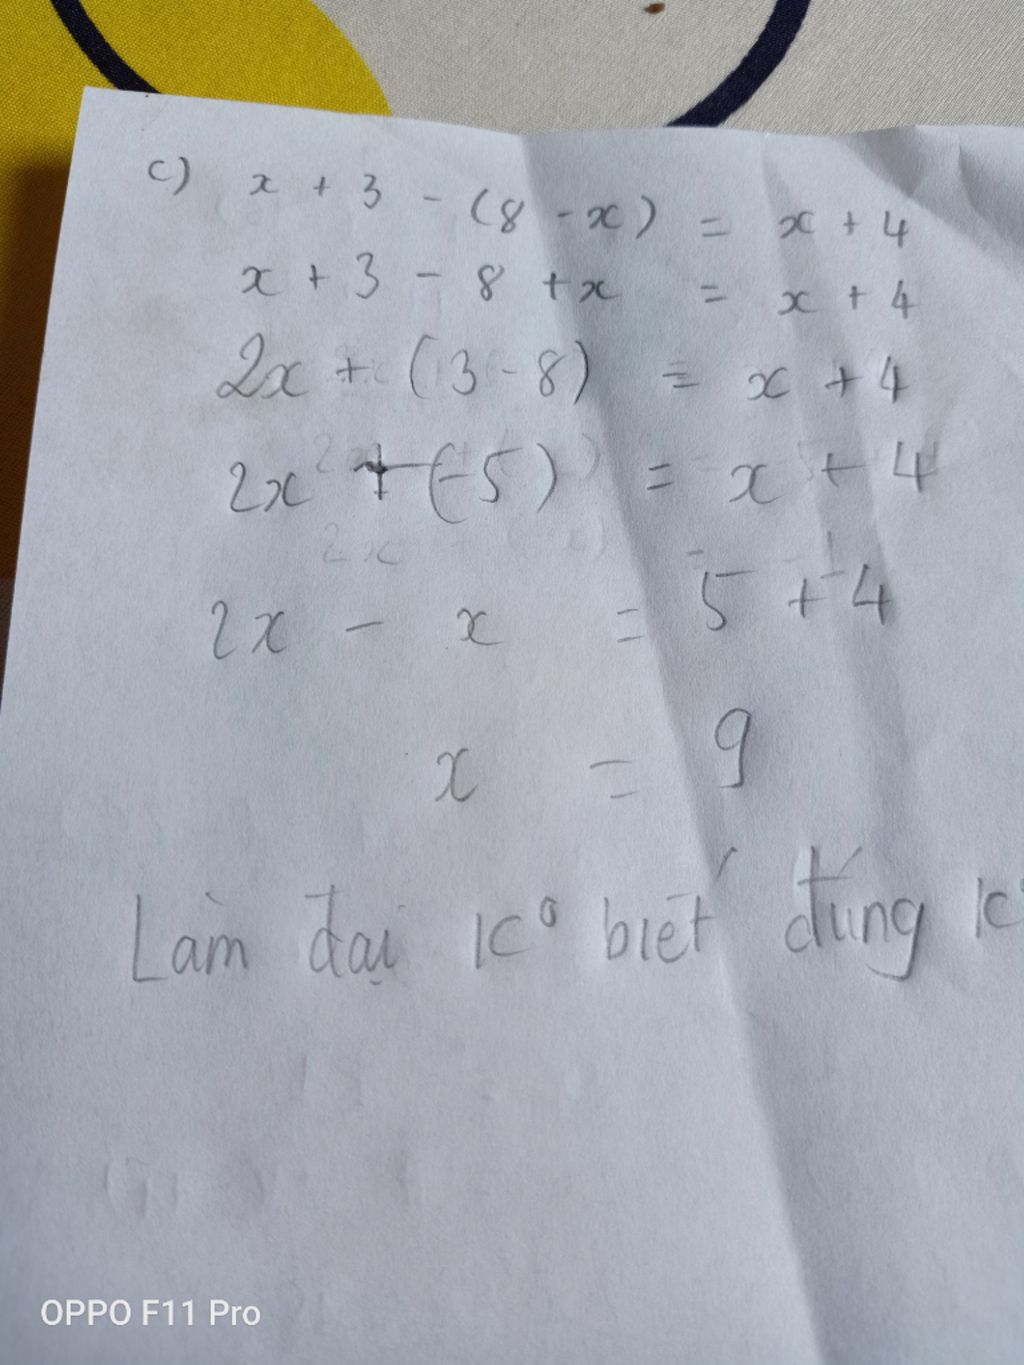 c) x + 3 - (8 - x) = x + 4
x + 3 - 8 + x = x + 4
2x + (3 - 8) = x + 4
2x + (-5) = x + 4
2x - x = 5 + 4
x = 9
Làm đại ko biết đúng ko
OPPO F11 Pro